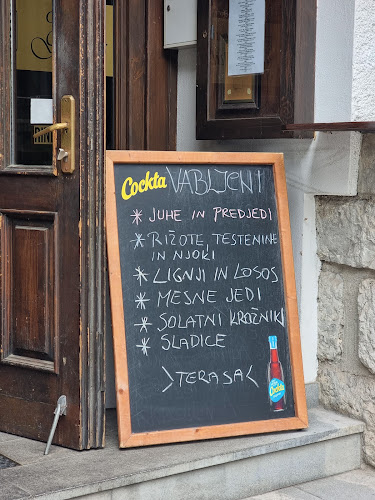 Cockta VABLJENI
* JUHE IN PREDJEDI
* RIŽOTE, TESTENINE
IN NJOKI
* LIGNJI IN LOSOS
* MESNE JEDI
* SOLATNI KROŽNIKI
* SLADICE
>TERASA<
Cockta